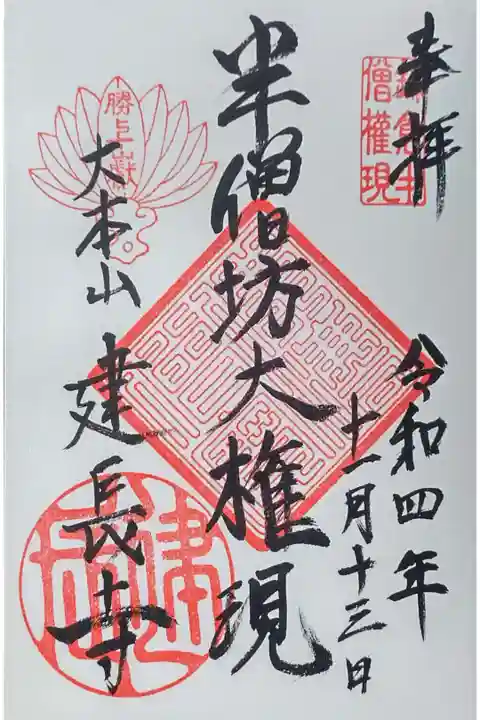 奉拝
令和四年
十一月十三日
半僧坊大権現
大本山
建長寺
僧權現
勝上嶽